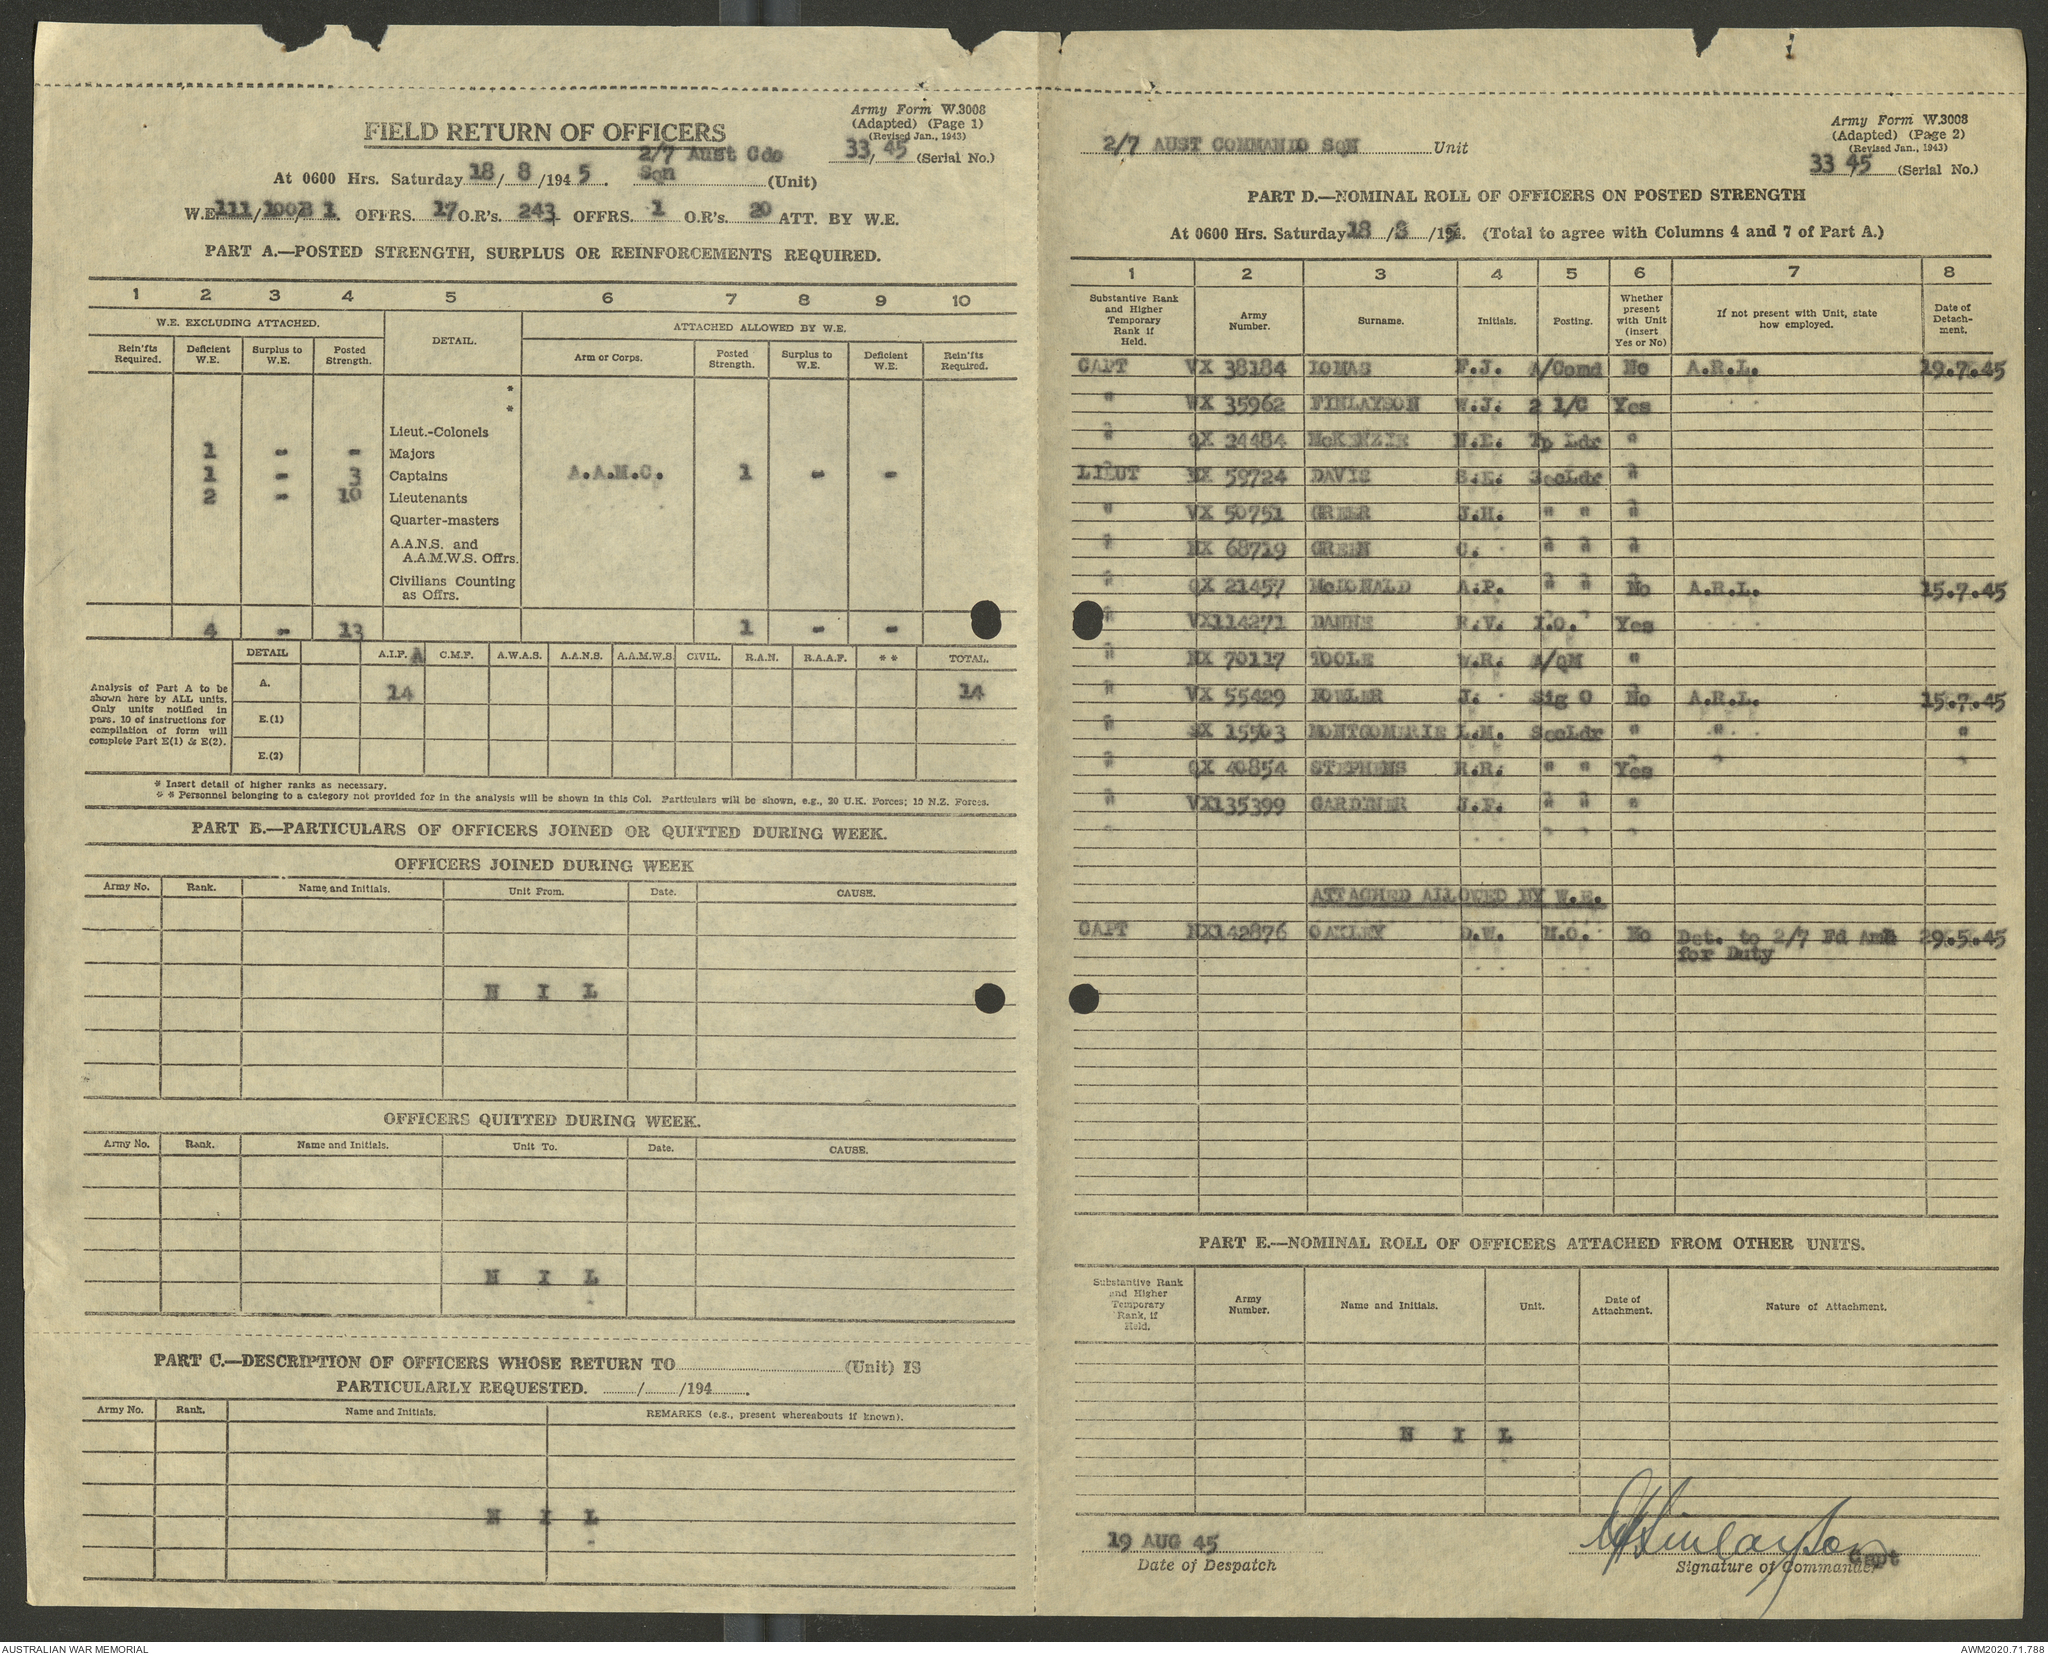 Army Form W.3008
(Adapted) (Page 1)
(Revised Jan., 1943)
33/45 (Serial No.)
FIELD RETURN OF OFFICERS
2/7 Aust Cdo
At 0600 Hrs. Saturday 18/8/1945. Sqn (Unit)
W.E. 111/1007/ 1. OFFRS. 17 O.R's. 243 OFFRS. 1 O.R's. 20 ATT. BY W.E.
PART A.—POSTED STRENGTH, SURPLUS OR REINFORCEMENTS REQUIRED.
1 2 3 4 5 6 7 8 9 10
W.E. EXCLUDING ATTACHED. DETAIL. ATTACHED ALLOWED BY W.E.
Rein'fts Required. Deficient W.E. Surplus to W.E. Posted Strength. Arm or Corps. Posted Strength. Surplus to W.E. Deficient W.E. Rein'fts Required.
*
*
Lieut.-Colonels
1 - - Majors
1 - 3 Captains A.A.M.C. 1 - -
2 - 10 Lieutenants
Quarter-masters
A.A.N.S. and
A.A.M.W.S. Offrs.
Civilians Counting
as Offrs.
4 - 13 1 - -
DETAIL A.I.F. A C.M.F. A.W.A.S. A.A.N.S. A.A.M.W.S. CIVIL. R.A.N. R.A.A.F. * * TOTAL.
Analysis of Part A to be
shown here by ALL units.
Only units notified in
pars. 10 of instructions for
compilation of form will
complete Part E(1) & E(2).
A. 14 14
E.(1)
E.(2)
* Insert detail of higher ranks as necessary.
* * Personnel belonging to a category not provided for in the analysis will be shown in this Col. Particulars will be shown, e.g., 20 U.K. Forces; 10 N.Z. Forces.
PART B.—PARTICULARS OF OFFICERS JOINED OR QUITTED DURING WEEK.
OFFICERS JOINED DURING WEEK
Army No. Rank. Name and Initials. Unit From. Date. CAUSE.
N I L
OFFICERS QUITTED DURING WEEK.
Army No. Rank. Name and Initials. Unit To. Date. CAUSE.
N I L
PART C.—DESCRIPTION OF OFFICERS WHOSE RETURN TO (Unit) IS
PARTICULARLY REQUESTED. / /194 .
Army No. Rank. Name and Initials. REMARKS (e.g., present whereabouts if known).
N I L
Army Form W.3008
(Adapted) (Page 2)
(Revised Jan., 1943)
2/7 AUST COMMANDO SQN Unit
33 45 (Serial No.)
PART D.—NOMINAL ROLL OF OFFICERS ON POSTED STRENGTH
At 0600 Hrs. Saturday 18/8/1945. (Total to agree with Columns 4 and 7 of Part A.)
1 2 3 4 5 6 7 8
Substantive Rank and Higher Temporary Rank if Held. Army Number. Surname. Initials. Posting. Whether present with Unit (insert Yes or No) If not present with Unit, state how employed. Date of Detachment.
CAPT VX 38184 LOMAS F.J. A/Comd No A.R.L. 19.7.45
" WX 35962 FINLAYSON W.J. 2 I/C Yes
" QX 24484 McKENZIE N.E. Tp Ldr "
LIEUT NX 59724 DAVIS S.E. SecLdr "
" VX 50751 GREER J.H. " " "
" NX 68719 GREEN C. " " "
" QX 21457 McDONALD A.P. " " No A.R.L. 15.7.45
" VX114271 DANNE R.V. I.O. Yes
" NX 70117 TOOLE W.R. A/QM "
" VX 55429 FOWLER J. Sig O No A.R.L. 15.7.45
" SX 15503 MONTGOMERIE L.M. SecLdr " " "
" QX 40854 STEPHENS R.R. " " Yes
" VX135399 GARDENER J.F. " " "
ATTACHED ALLOWED BY W.E.
CAPT NX142876 OAKLEY D.W. M.O. No Det. to 2/7 Fd Amb 29.5.45
for Duty
PART E.—NOMINAL ROLL OF OFFICERS ATTACHED FROM OTHER UNITS.
Substantive Rank and Higher Temporary Rank, if Held. Army Number. Name and Initials. Unit. Date of Attachment. Nature of Attachment.
N I L
19 AUG 45
Date of Despatch
WJFinlayson Capt
Signature of Commander
AUSTRALIAN WAR MEMORIAL
AWM2020.71.788